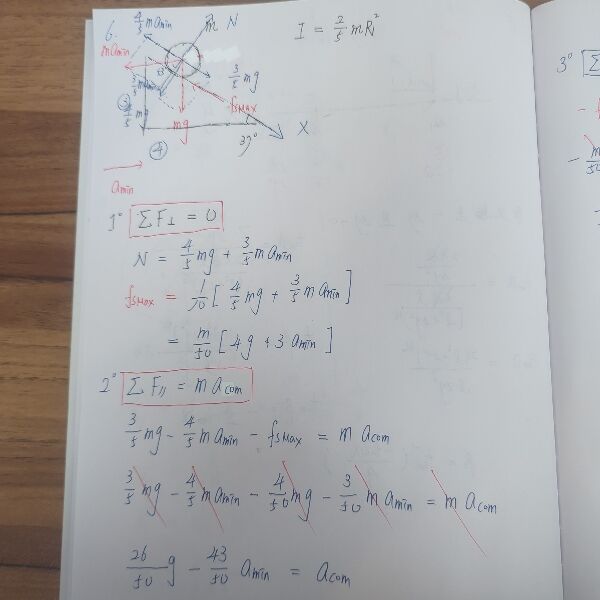 6.
4/5 m amin
m N
I = 2/5 mR²
m amin
3/5 mg
fsMax
③
4/5 mg
mg
④
37°
X
amin
1° ΣF⊥ = 0
N = 4/5 mg + 3/5 m amin
fsMax = 1/10 [ 4/5 mg + 3/5 m amin ]
= m/50 [ 4g + 3 amin ]
2° ΣF∥ = m acom
3/5 mg - 4/5 m amin - fsMax = m acom
3/5 mg - 4/5 m amin - 4/50 mg - 3/50 m amin = m acom
26/50 g - 43/50 amin = acom
3° Σ
- f
- m/50